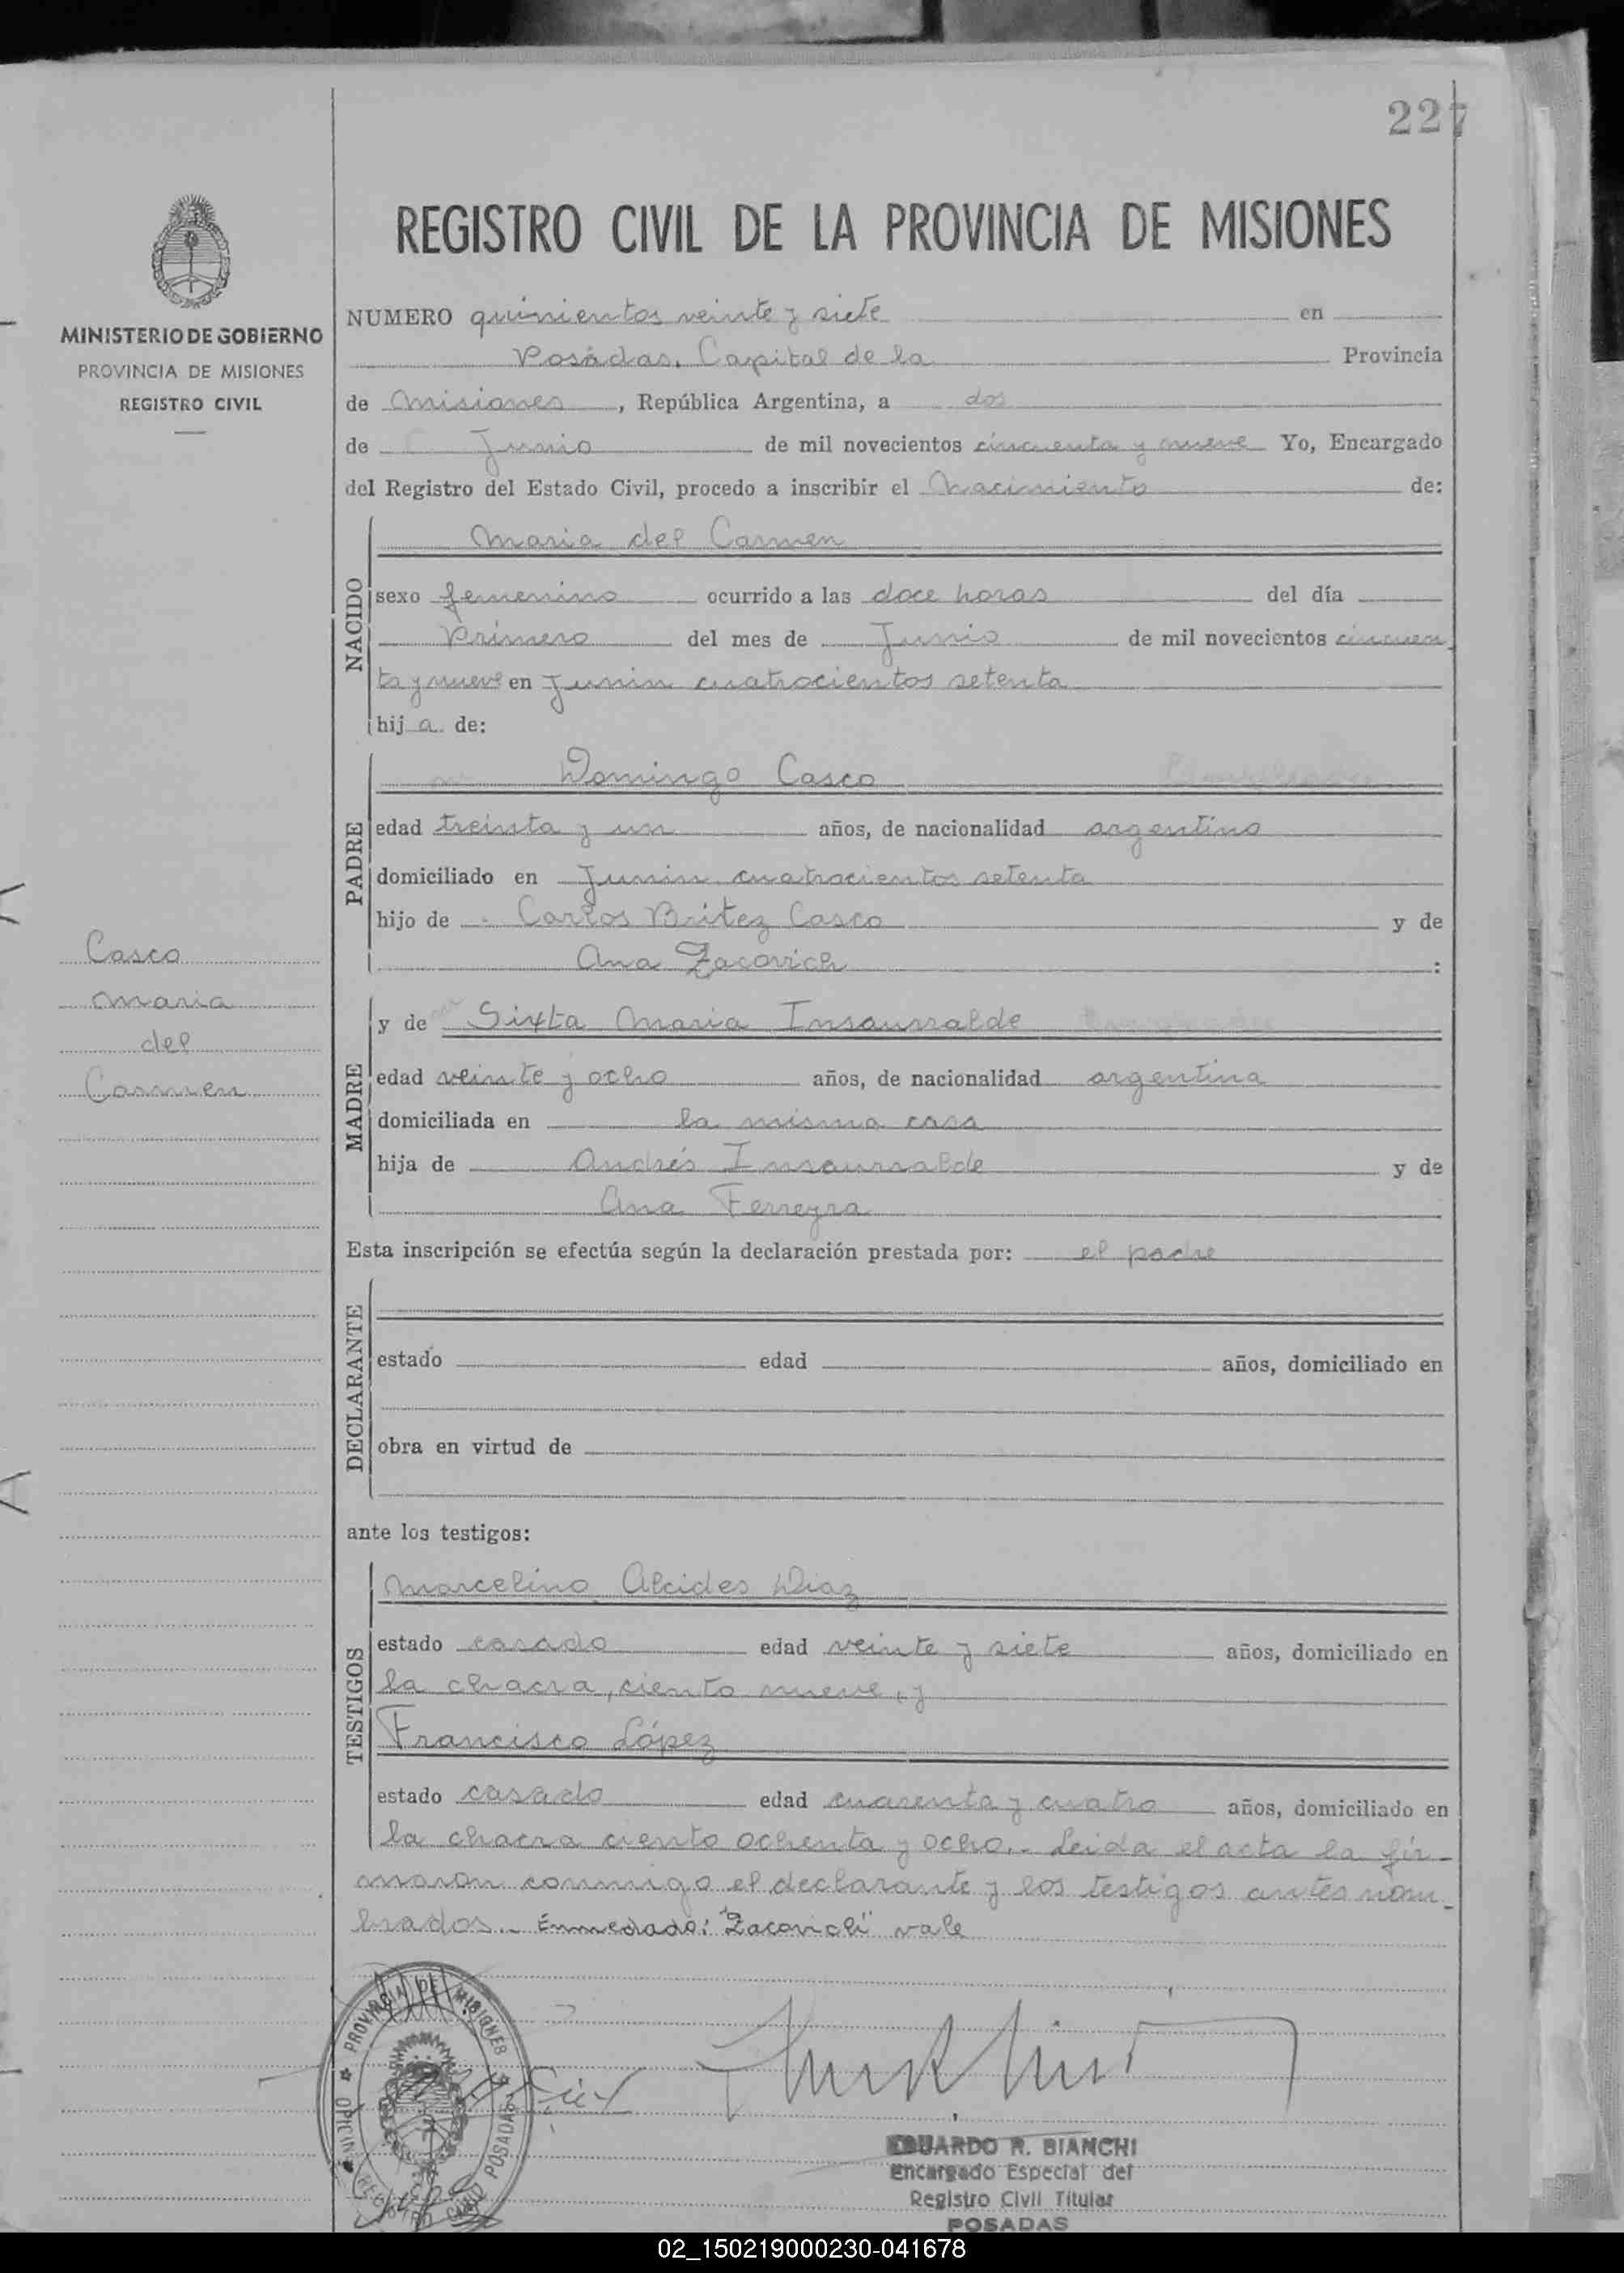 227
REGISTRO CIVIL DE LA PROVINCIA DE MISIONES
MINISTERIO DE GOBIERNO
PROVINCIA DE MISIONES
REGISTRO CIVIL
NUMERO quinientos veinte y siete en
Posadas, Capital de la Provincia
de Misiones, República Argentina, a dos
de Junio de mil novecientos cincuenta y nueve Yo, Encargado
del Registro del Estado Civil, procedo a inscribir el Nacimiento de:
NACIDO
Maria del Carmen
sexo femenino ocurrido a las doce horas del día
Primero del mes de Junio de mil novecientos cincuen
ta y nueve en Junin cuatrocientos setenta
hij a de:
PADRE
Domingo Casco
edad treinta y un años, de nacionalidad argentino
domiciliado en Junin cuatrocientos setenta
hijo de Carlos Britez Casco y de
Ana Zacovich :
Casco
Maria
del
Carmen
MADRE
y de Sixta Maria Insaurralde
edad veinte y ocho años, de nacionalidad argentina
domiciliada en la misma casa
hija de Andrés Insaurralde y de
Ana Ferreyra
Esta inscripción se efectúa según la declaración prestada por: el padre
DECLARANTE
estado edad años, domiciliado en
obra en virtud de
ante los testigos:
TESTIGOS
Marcelino Alcides Diaz
estado casado edad veinte y siete años, domiciliado en
la chacra, ciento nueve, y
Francisco López
estado casado edad cuarenta y cuatro años, domiciliado en
la chacra ciento ochenta y ocho.- Leida el acta la fir-
maron conmigo el declarante y los testigos antes nom-
brados.- Enmedado: "Zacovich" vale
PROVINCIA DE MISIONES
REGISTRO CIVIL POSADAS
EDUARDO R. BIANCHI
Encargado Especial del
Registro Civil Titular
POSADAS
02_150219000230-041678